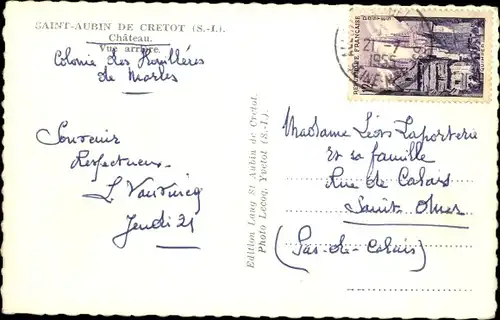 SAINT-AUBIN DE CRETOT (S.-I.).
Château.
Vue arrière.
Colonie des Houillères
de Marles
Souvenir
Respectueux
Jeudi 21
Edition Lucq St-Aubin de Cretot.
Photo Lecoq, Yvetot (S.-I.).
REPUBLIQUE FRANÇAISE
POSTES
QUIMPER
21-7
1955
Madame Léon Laporterie
et sa famille
Rue de Calais
Saint Omer
(Pas-de-Calais)